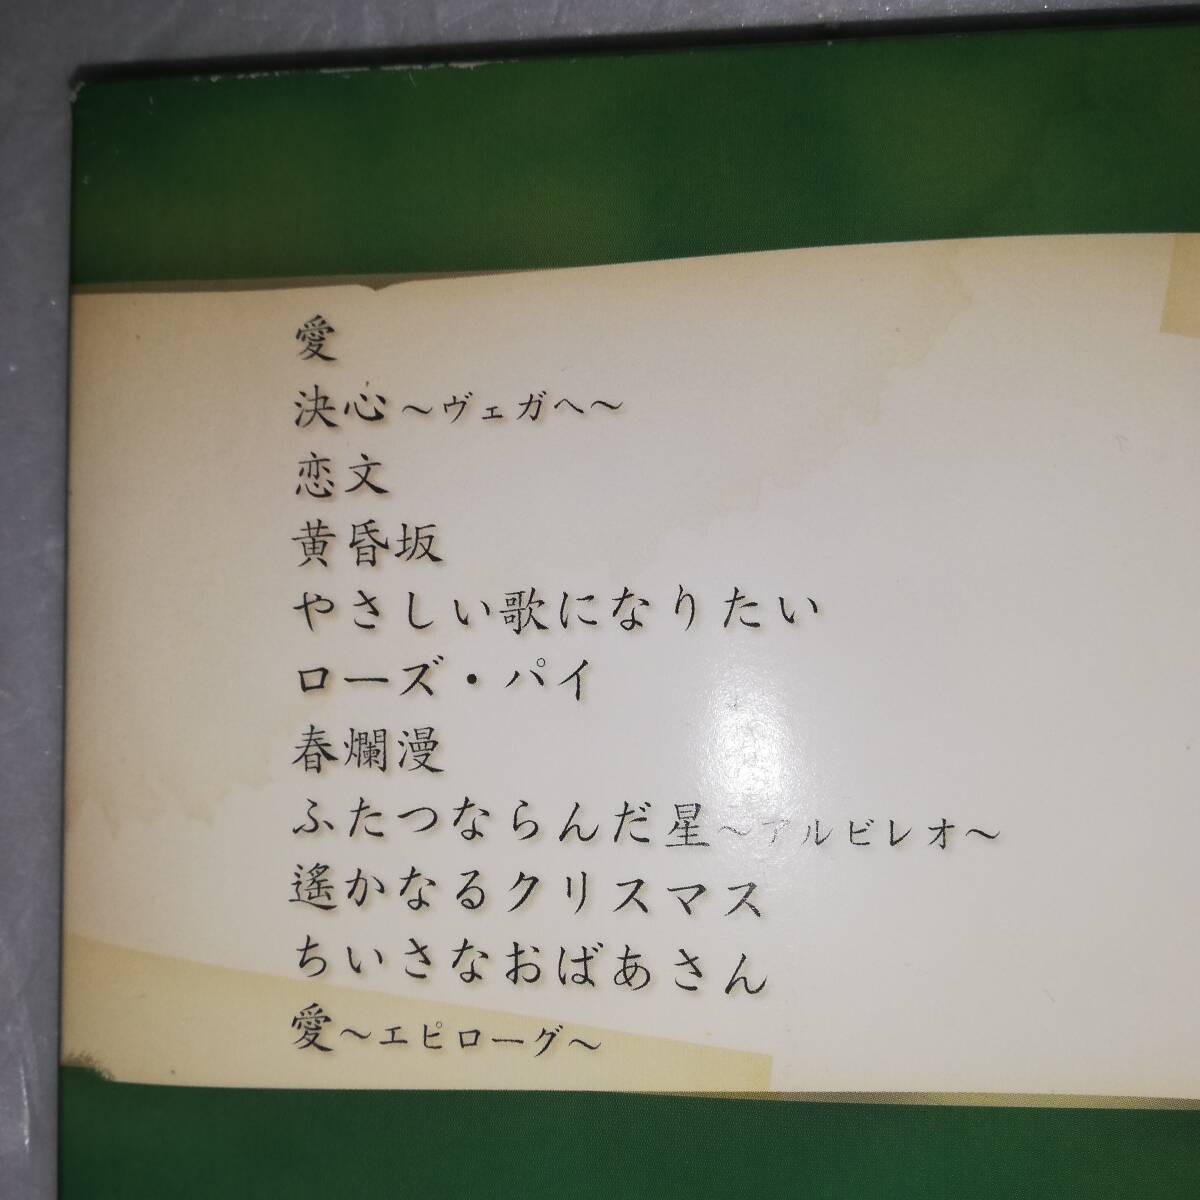 愛
決心～ヴェガへ～
恋文
黄昏坂
やさしい歌になりたい
ローズ・パイ
春爛漫
ふたつならんだ星～アルビレオ～
遙かなるクリスマス
ちいさなおばあさん
愛～エピローグ～